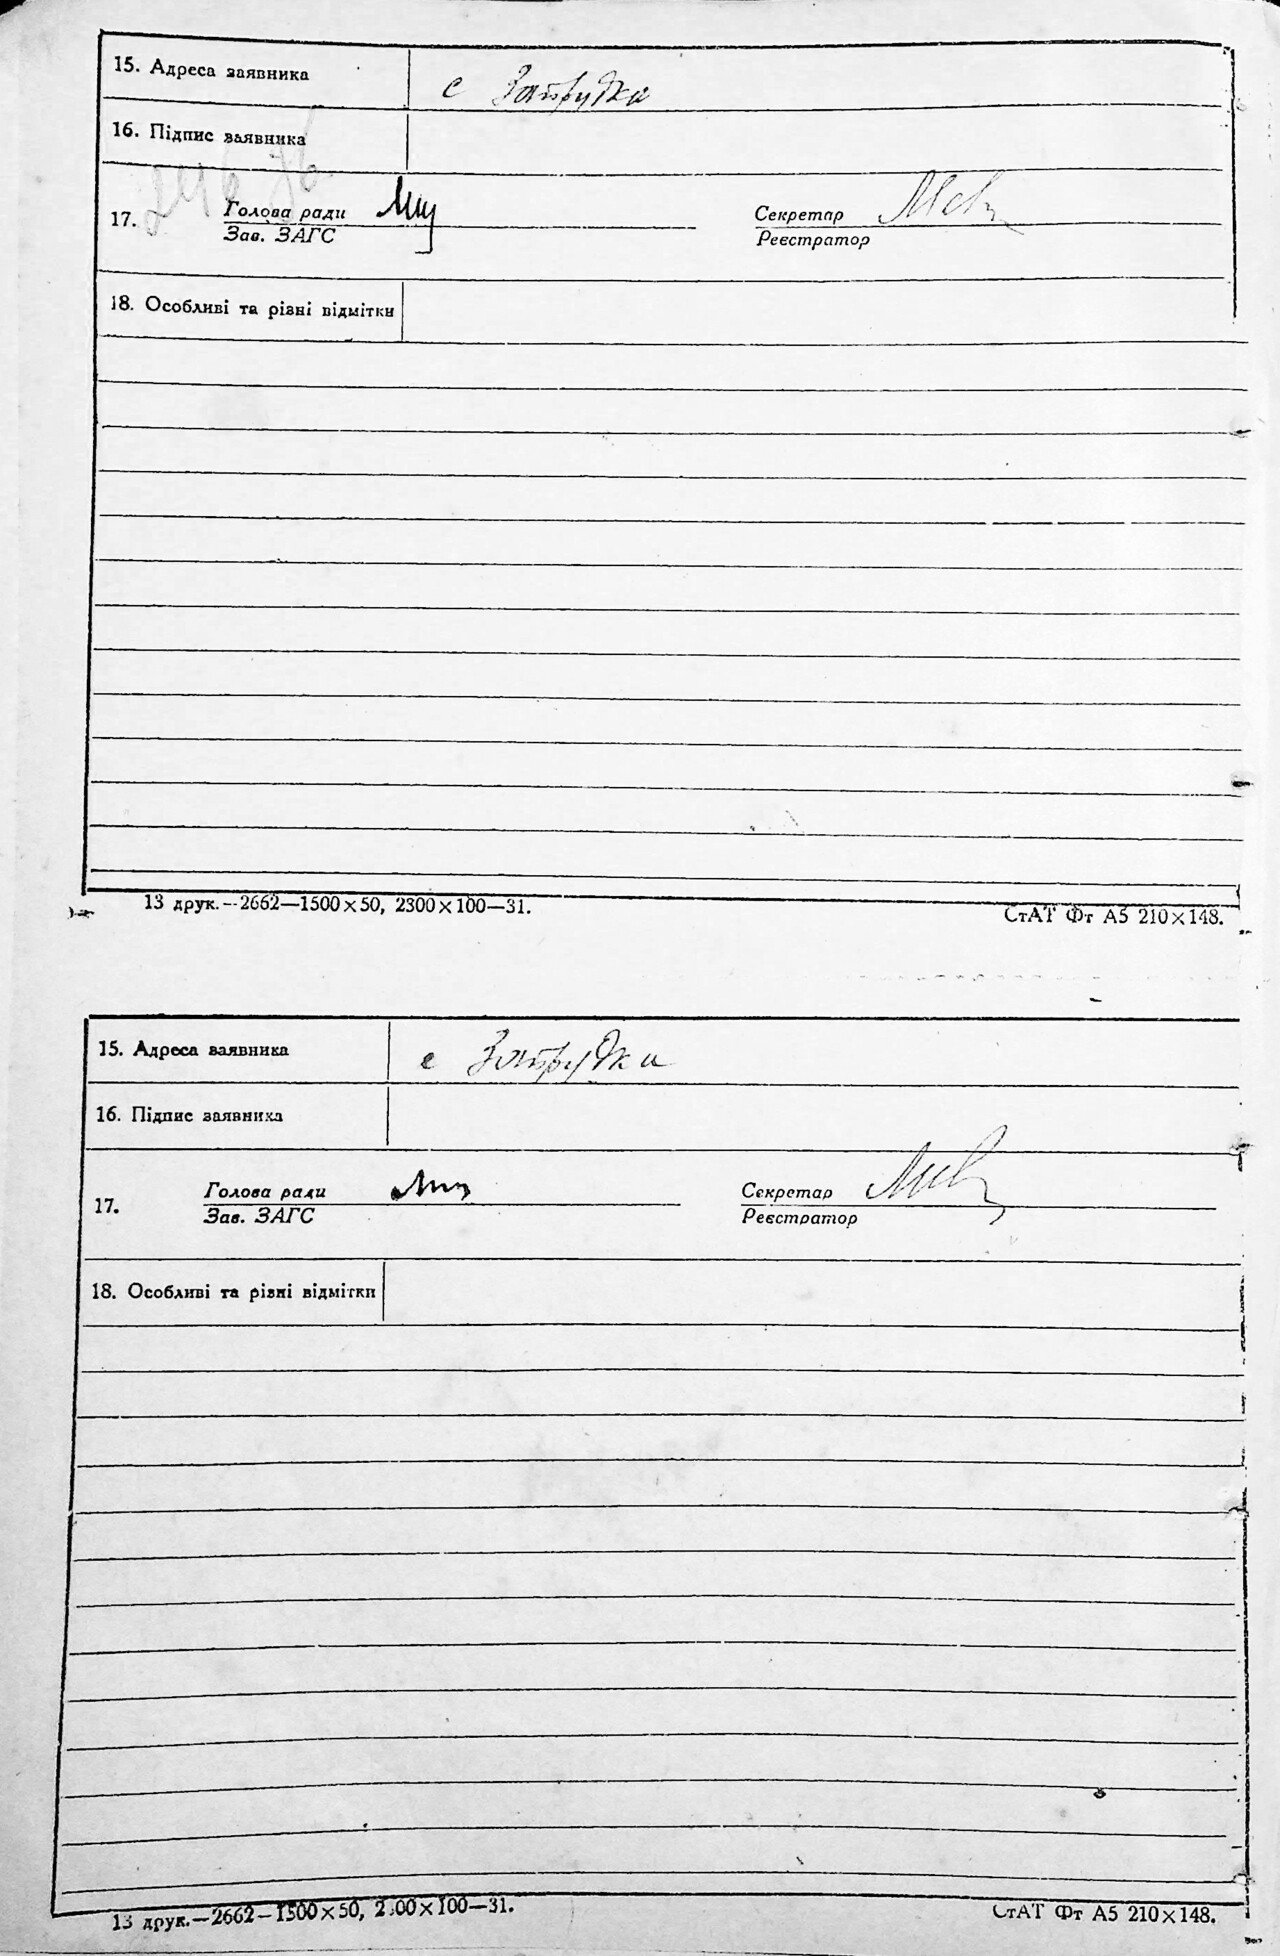 15. Адреса заявника
с Запрудка
16. Підпис заявника
17. Голова ради
Зав. ЗАГС
Секретар
Реєстратор
18. Особливі та різні відмітки
13 друк.—2662—1500×50, 2300×100—31.
СтАТ Фт А5 210×148.
15. Адреса заявника
с Запрудка
16. Підпис заявника
17. Голова ради
Зав. ЗАГС
Секретар
Реєстратор
18. Особливі та різні відмітки
13 друк.—2662—1500×50, 2300×100—31.
СтАТ Фт А5 210×148.